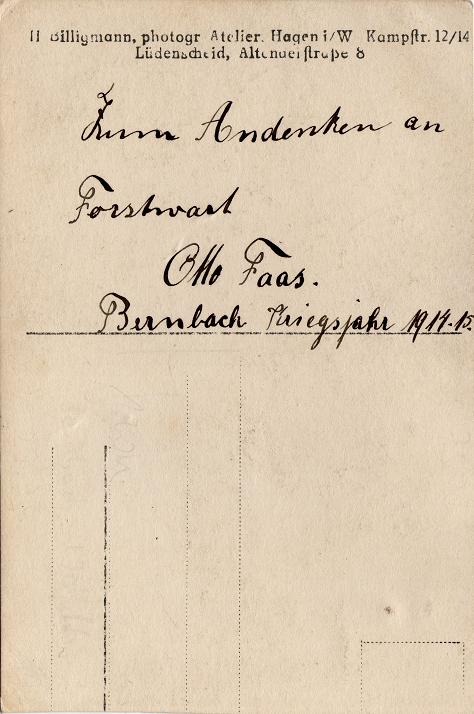 H Billigmann, photogr Atelier. Hagen i/W Kampfstr. 12/14
Lüdenscheid, Altenaerstraße 8
Zum Andenken an
Forstwart
Otto Faas.
Bernbach Kriegsjahr 1914-15.